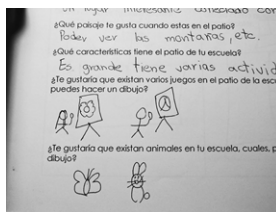 un lugar interesante conectado con
¿Qué paisaje te gusta cuando estas en el patio?
Poder ver las montañas, etc.
¿Qué características tiene el patio de tu escuela?
Es grande tiene varias activid
¿Te gustaría que existan varios juegos en el patio de la esc
puedes hacer un dibujo?
¿Te gustaría que existan animales en tu escuela, cuales, p
dibujo?